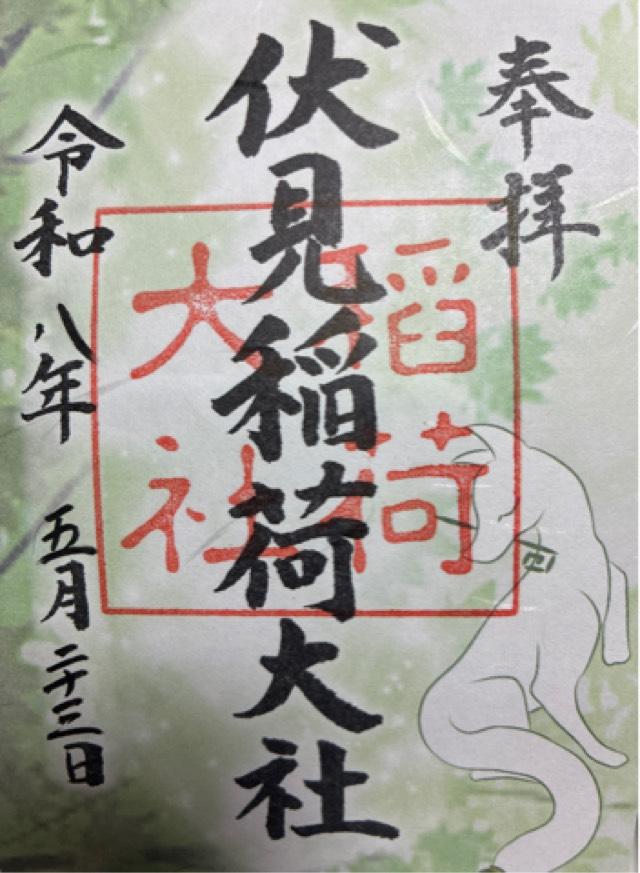 奉拝
伏見稲荷大社
稲荷
大社
令和八年 五月二十三日